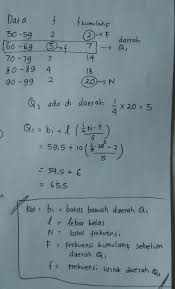 Data f f kumulatif
50-59 2 2 → F
60-69 5 → f 7 daerah Q₁
70-79 7 14
80-89 4 18
90-99 2 20 → N
Q₁ ada di daerah 1/4 × 20 = 5
Q₁ = b₁ + l (1/4 N - F / f)
= 59,5 + 10 (1/4 · 20 - 2 / 5)
= 59,5 + 6
= 65,5
Ket = b₁ = batas bawah daerah Q₁
l = lebar kelas
N = total frekuensi
F = Frekuensi kumulatif sebelum
daerah Q₁
f = frekuensi untuk daerah Q₁